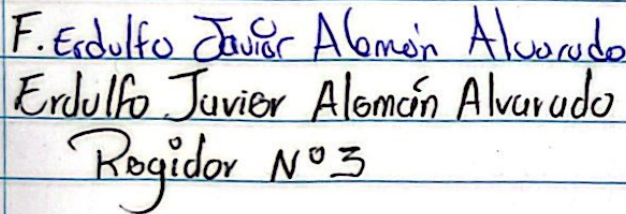 F. Erdulfo Javier Alemán Alvarado
Erdulfo Javier Alemán Alvarado
Regidor Nº 3